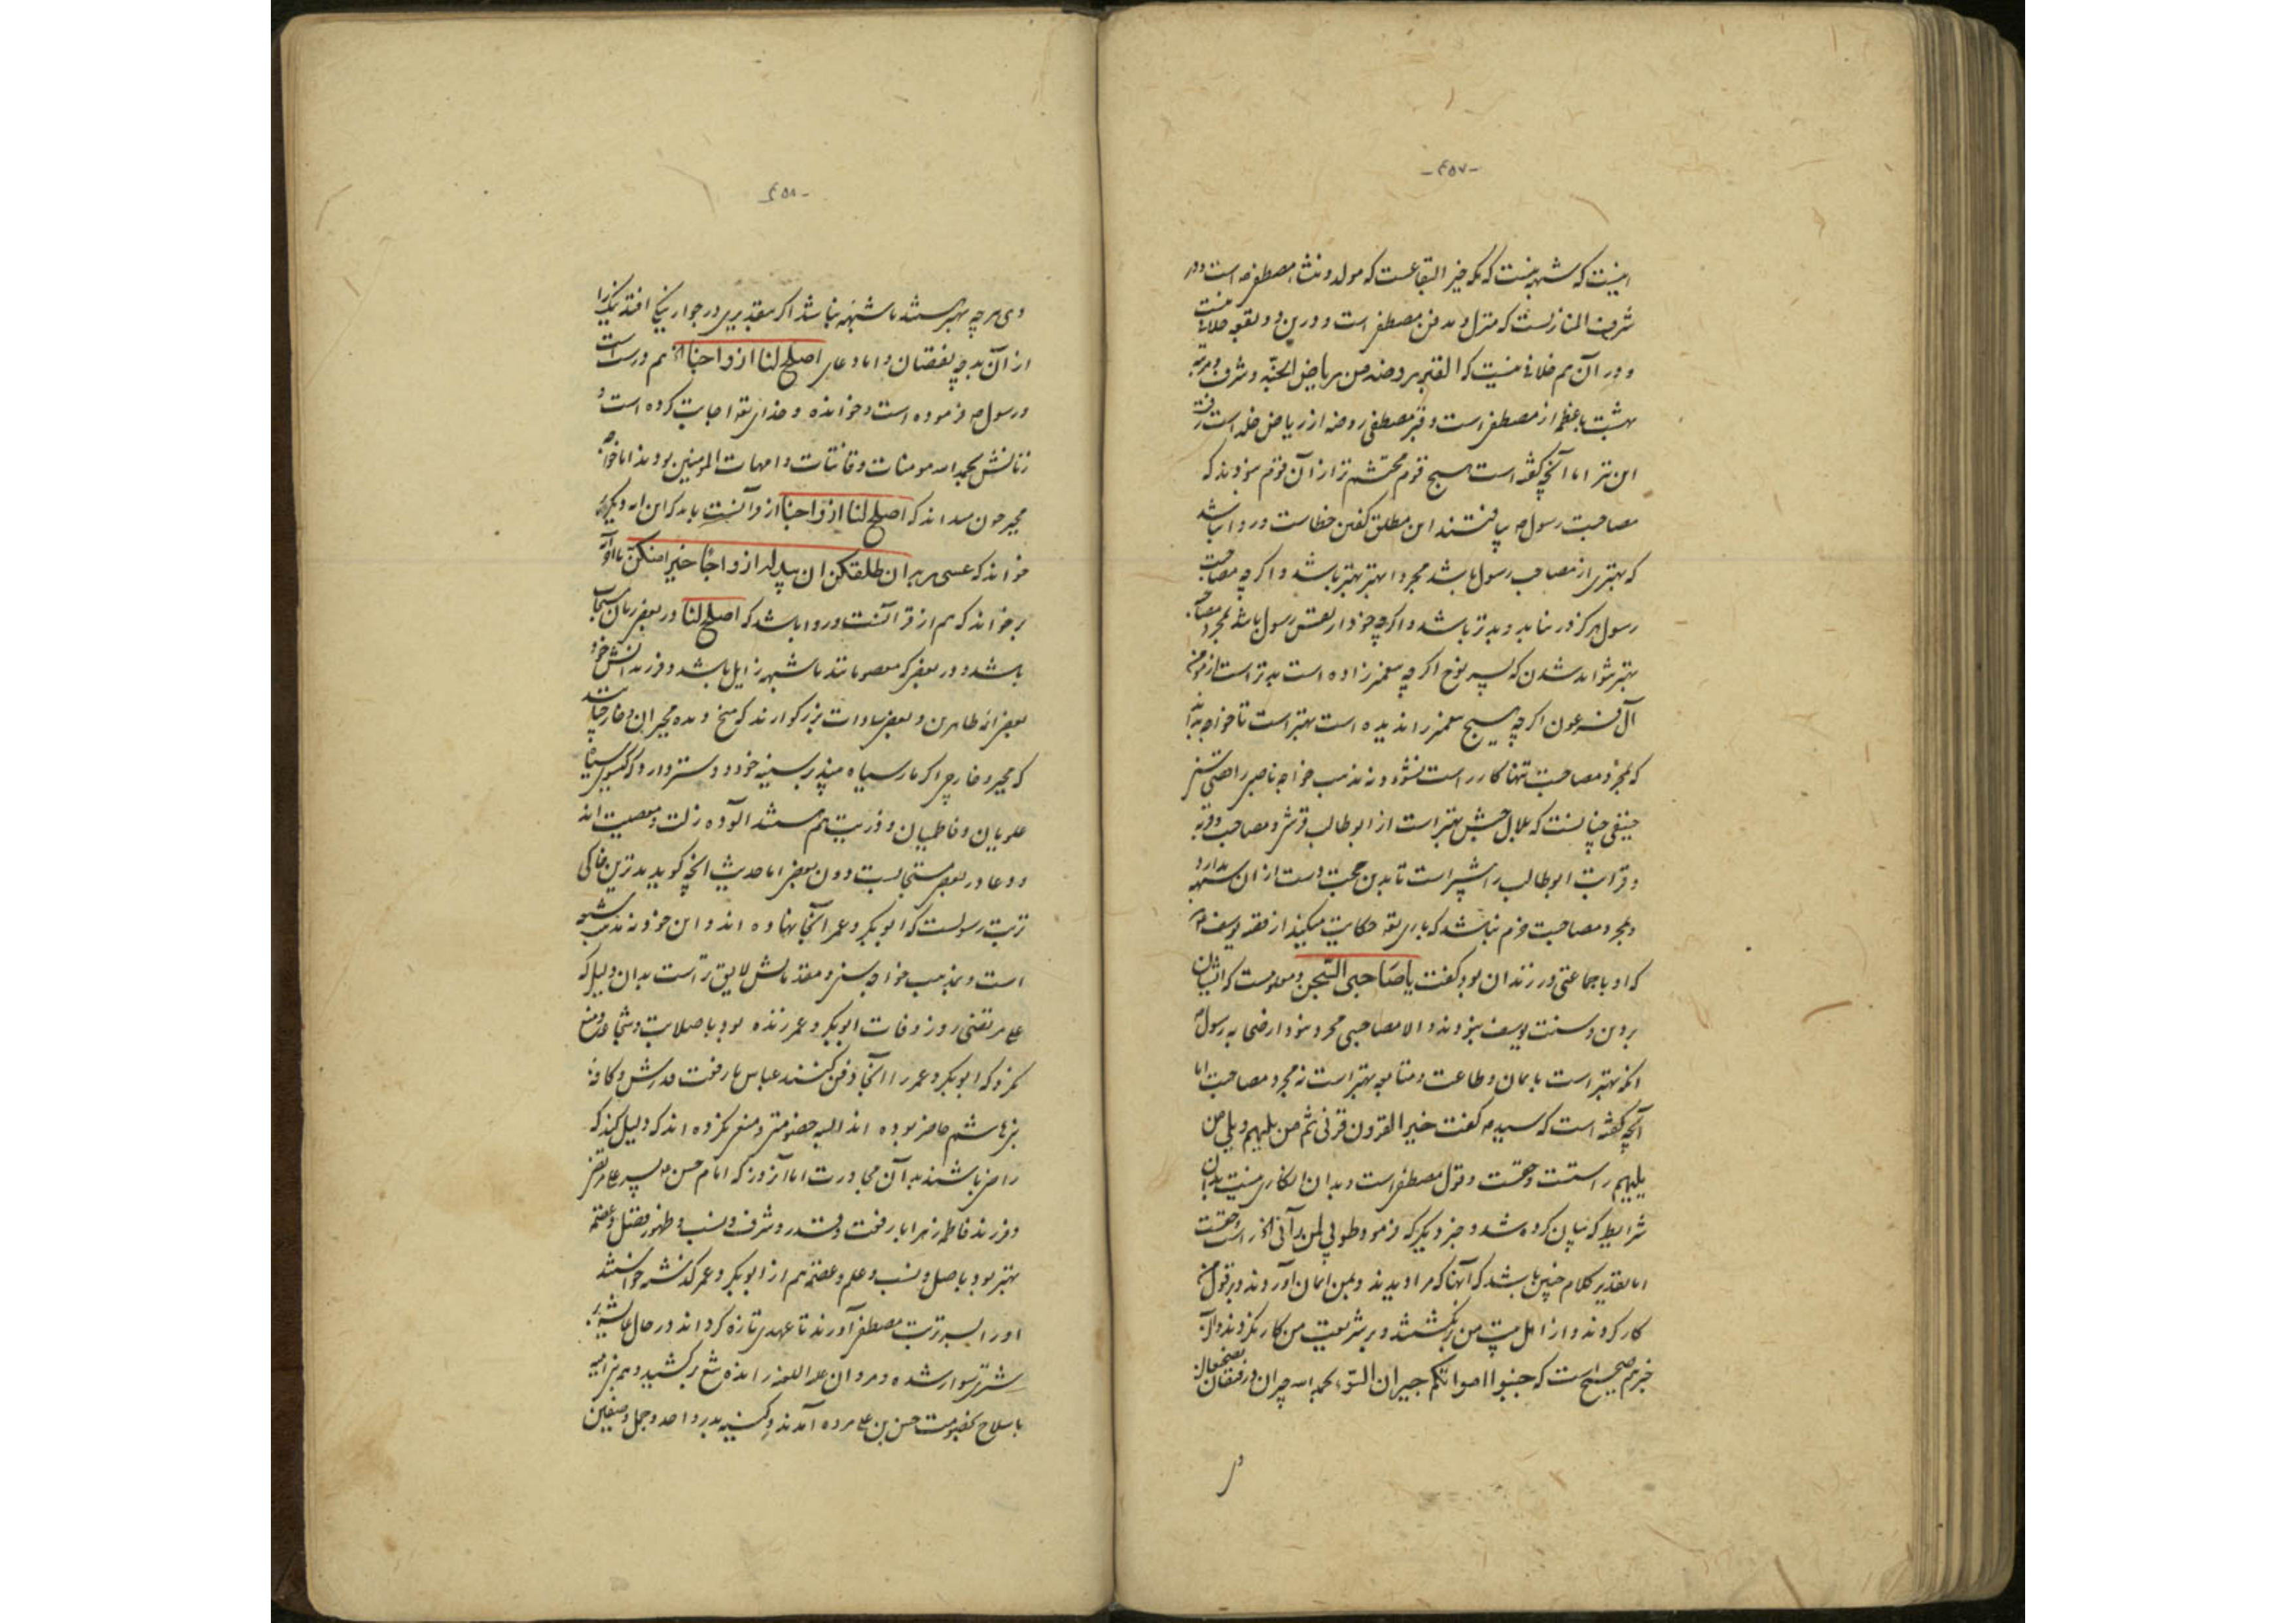 -٤٥٧-
اینست که شبهه نیست که مکه خیر البقاعست که مولد و منشاء مصطفی است و در
شرف المنازلست که منزل و مدفن مصطفی است و درین دو بقعه خلافی نیست
و در آن هم خلافی نیست که القبر روضه من ریاض الجنّه و شرف و مرتبه
بهشت با عظم از مصطفی است و قبر مصطفی روضه از ریاض خلد است
این تیر اما آنچه گفته است هیچ قوم محتشم تر از آن قوم نبودند که
مصاحبت رسول م یافتند این مطلق گفتن خطاست و روا نباشد
که بهتری از مصاحب رسول باشد مجرد ا بهتر بهتر باشد و اگر چه مصاحبت
رسول هرگز در نیابد و بدتر باشد و اگر چه خود از نفس رسول باشد بمجرد
بهتر نتواند شدن که پسر نوح اگر چه پیغمبر زاده است بدتر است از مومن
آل فرعون اگر چه هیچ پیغمبر را ندیده است بهتر است تا خواجه بداند
که بمجرد مصاحبت تنها کار راست نشود و نه مذهب خواجه ناصبی
حنیفی چنانست که بلال حبش بهتر است از ابوطالب قرشی و مصاحبت
و قرابت ابوطالب را بیشتر است تا بدین حجت دست از ان شبهه بدارد
و بمجرد مصاحبت خرم نباشد که باری تعه حکایت میکند از قصه یوسف
که او با جماعتی در زندان بود گفت یا صاحبی السّجن و معلومست که ایشان
بر دین و سنت یوسف نبودند و الا مصاحبی مجرد نبود
ائمه بهتر است بایمان و طاعت و متابعه بهتر است نه مجرد مصاحبت اما
آنچه گفته است که سید م گفت خیر القرون قرنی ثم من یلیهم و یلی من
یلیهم راستست و حقست و قول مصطفی است و بدان انکاری نیست بدان
شرایط که بیان کرده شد و خبر دیگر که فرمود طوبی لمن رآنی الخ راست و حقست
اما تقدیر کلام چنین باشد که آنها که مرا دیدند و بمن ایمان آوردند و بر قول من
کار کردند و از اهل بیت من برنگشتند و بر شریعت من کار کردند و الا
خبرهم صحیح است که جنبوا امواتکم جیران السّوء بحمد الله جیران و رفیقان
در
-٤٥٨-
وی هر چه بهتر هستند تا شبهه نباشد اگر بتقدیری در جوار نیکی افتد
از آن بد چه نقصان و اما دعای اصلح لنا ازواجنا الخ هم درست است
و رسول م فرموده است و خوانده و خدای تعه اجابت کرده است و
زنانش بحمد الله مومنات و قانتات و امهات المومنین بودند اما خواجه
مجبر چون میداند که اصلح لنا ازواجنا از قرآنست باید که این ایه دیگر
خواند که عسی ربه ان طلقکن ان یبدله ازواجا خیرا منکن تا آخر
برخواند که هم از قرآنست و روا باشد که اصلح لنا در بعضی زنان مستجاب
باشد و در بعضی که معصومانند تا شبهه زایل باشد و فرزندانش خود
بعضی ائمه طاهرین و بعضی سادات بزرگوارند که میخ دیده مجبران و خارجیانند
که مجبر و خارجی اگر مار سیاه بیند بر سینه خود دوستر دارد که گیسوی سیاه
علویان و فاطمیان و ذریت هم هستند آلوده زلت و معصیت اند
و دعا در بعضی مستجابست دون بعضی اما حدیث انچه گوید بدترین خاکی
تربت رسولست که ابوبکر و عمر آنجا نهاده اند و این خود نه مذهب شیعه
است و بمذهب خواجه سنی و مقدمانش لایق تر است بدان دلیل که
علی مرتضی روز وفات ابوبکر و عمر زنده بود با صلابت و شجاعت و منع
نکرد که ابوبکر و عمر را آنجا دفن کنند عباس با رفعت قدرش و کافه
بنی هاشم حاضر بوده اند البته خصومتی و منعی نکرده اند که دلیل کند که
راضی باشند به آن مجاورت اما آن روز که امام حسن پسر علی مرتضی
و فرزند فاطمه زهرا با رفعت و قدر و شرف و نسب و ظهور فضل و عصمة
بهتر بود باصل و نسب و علم و عصمة هم از ابوبکر و عمر گذشته خواستند
او را بسر تربت مصطفی آورند تا عهدی تازه گردانند در حال عایشه
شتر سوار شده و مروان علیه اللعنه رانده تیغ برکشید و هم بنی امیه
با سلاح بخصومت حسن بن علی مرده آمدند و کینه بدر و احد و جمل و صفین